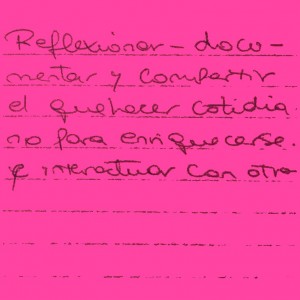 Reflexionar - docu-
mentar y compartir
el quehacer cotidia
no para enriquecerse.
e interactuar con otro